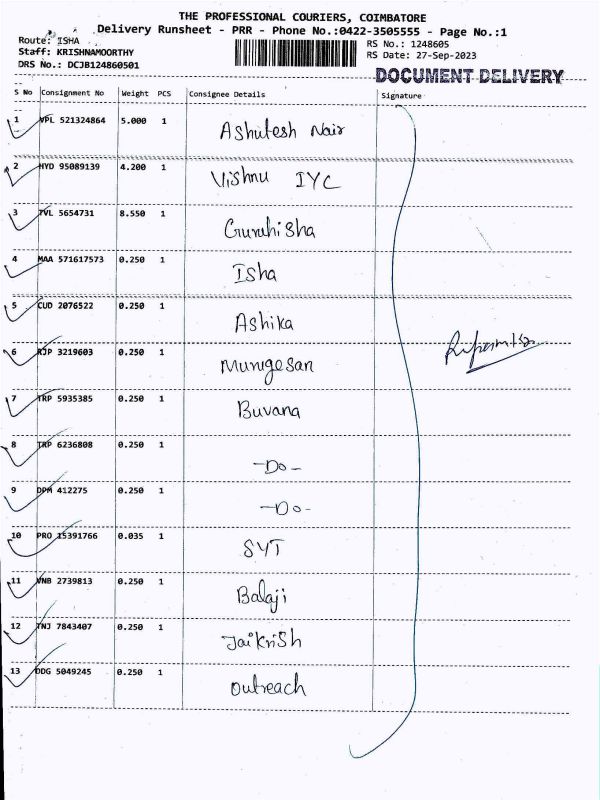 THE PROFESSIONAL COURIERS, COIMBATORE
Delivery Runsheet - PRR - Phone No.:0422-3505555 - Page No.:1
Route: ISHA
Staff: KRISHNAMOORTHY
DRS No.: DCJB124860501
RS No.: 1248605
RS Date: 27-Sep-2023
DOCUMENT DELIVERY
S No Consignment No Weight PCS Consignee Details Signature
1 VPL 521324864 5.000 1 Ashutesh Nair
2 HYD 95089139 4.200 1 Vishnu IYC
3 TVL 5654731 8.550 1 Guruhisha
4 MAA 571617573 0.250 1 Isha
5 CUD 2076522 0.250 1 Ashika
6 RJP 3219603 0.250 1 Murugesan
7 TRP 5935385 0.250 1 Buvana
8 TRP 6236808 0.250 1 -Do-
9 DPM 412275 0.250 1 -Do-
10 PRO 15391766 0.035 1 SYT
11 VNB 2739813 0.250 1 Balaji
12 TNJ 7843407 0.250 1 Jaikrish
13 DDG 5049245 0.250 1 Outreach